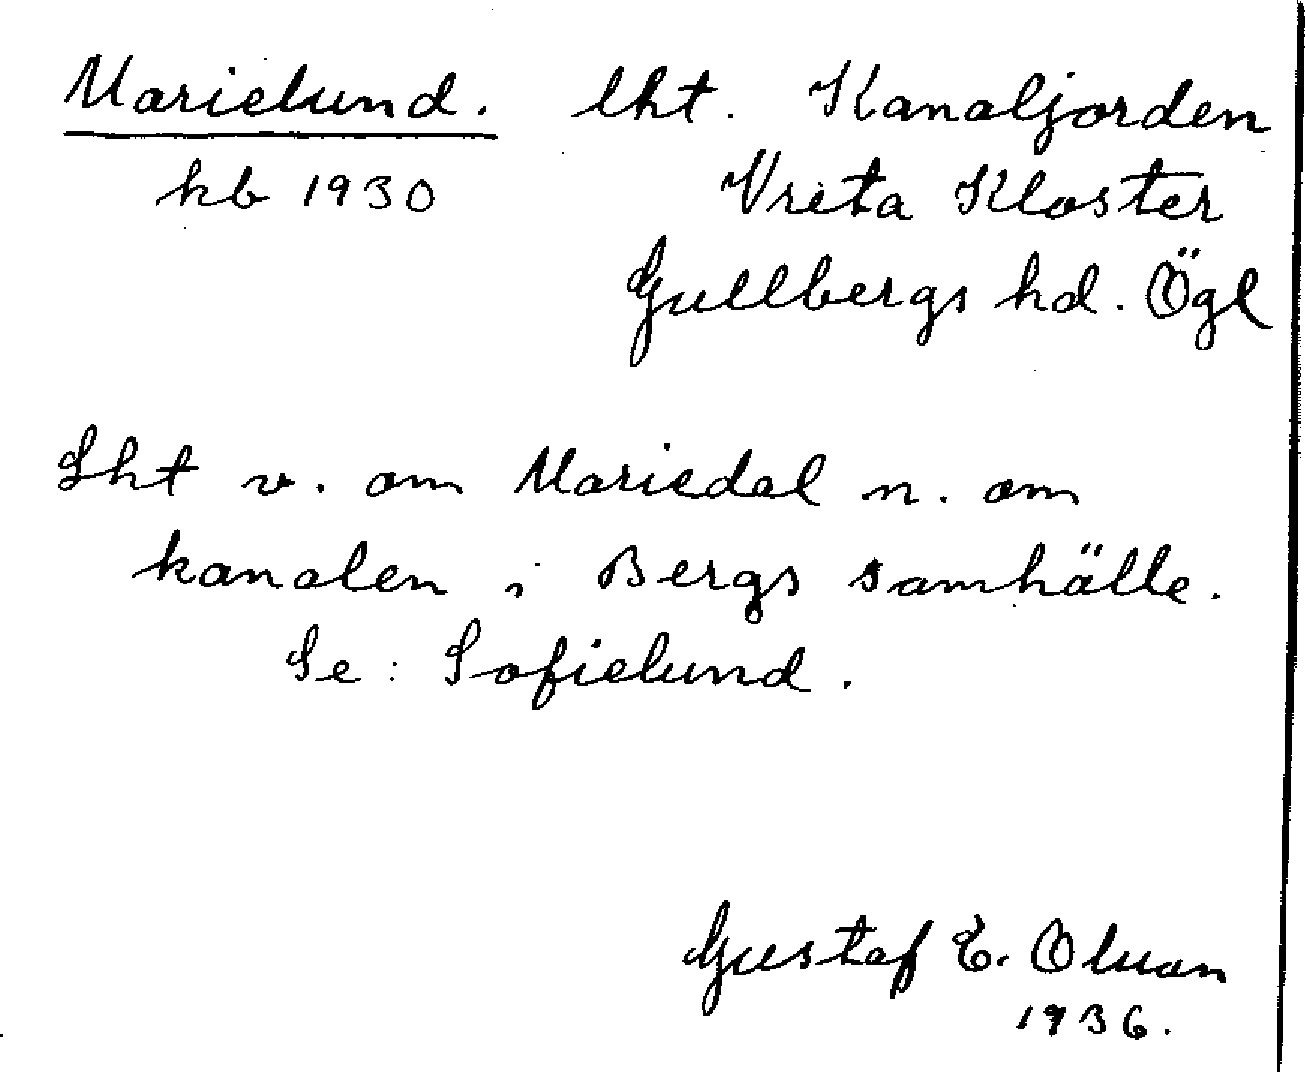 Marielund. lht. Kanaljorden
kb 1930 Vreta Kloster
Gullbergs hd. Ögl
Lht v. om Mariedal n. om
kanalen i Bergs samhälle.
Se: Sofielund.
Gustaf E. Oluan
1936.